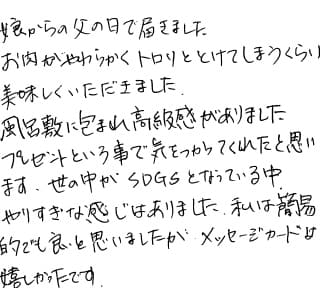 娘からの父の日で届きました
お肉がやわらかくトロリととけてしまうくらい
美味しくいただきました.
風呂敷に包まれ高級感がありました
プレゼントという事で気をつかってくれたと思い
ます、世の中がSDGSとなっている中
やりすぎな感じはありました.私は簡易
的でも良いと思いましたが メッセージカードは
嬉しかったです.